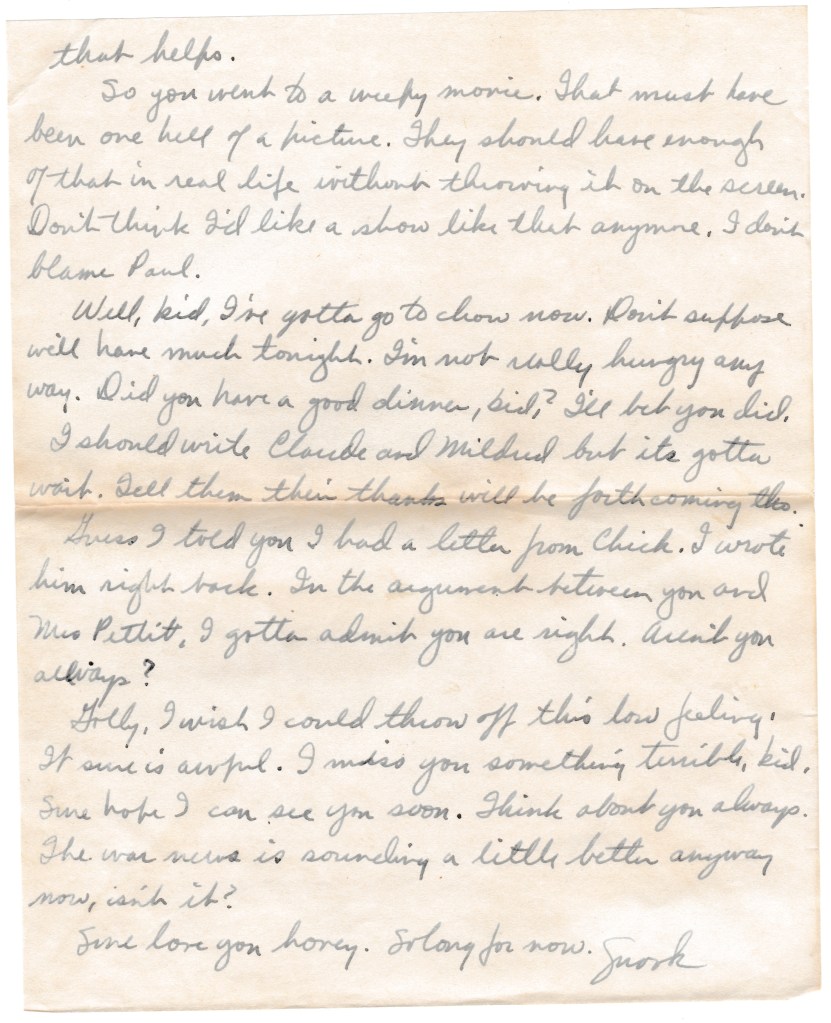 that helps.
So you went to a weepy movie. That must have
been one hell of a picture. They should have enough
of that in real life without throwing it on the screen.
Don't think I'd like a show like that anymore. I don't
blame Paul.
Well, kid, I've gotta go to chow now. Don't suppose
we'll have much tonight. I'm not really hungry any
way. Did you have a good dinner, kid,? I'll bet you did.
I should write Claude and Mildred but its gotta
wait. Tell them their thanks will be forthcoming tho.
Guess I told you I had a letter from Chick. I wrote
him right back. In the argument between you and
Mrs Pettit, I gotta admit you are right. Aren't you
always?
Golly, I wish I could throw off this low feeling.
It sure is awful. I miss you something terrible, kid.
Sure hope I can see you soon. Think about you always.
The war news is sounding a little better anyway
now, isn't it?
Sure love you honey. So long for now. Snork